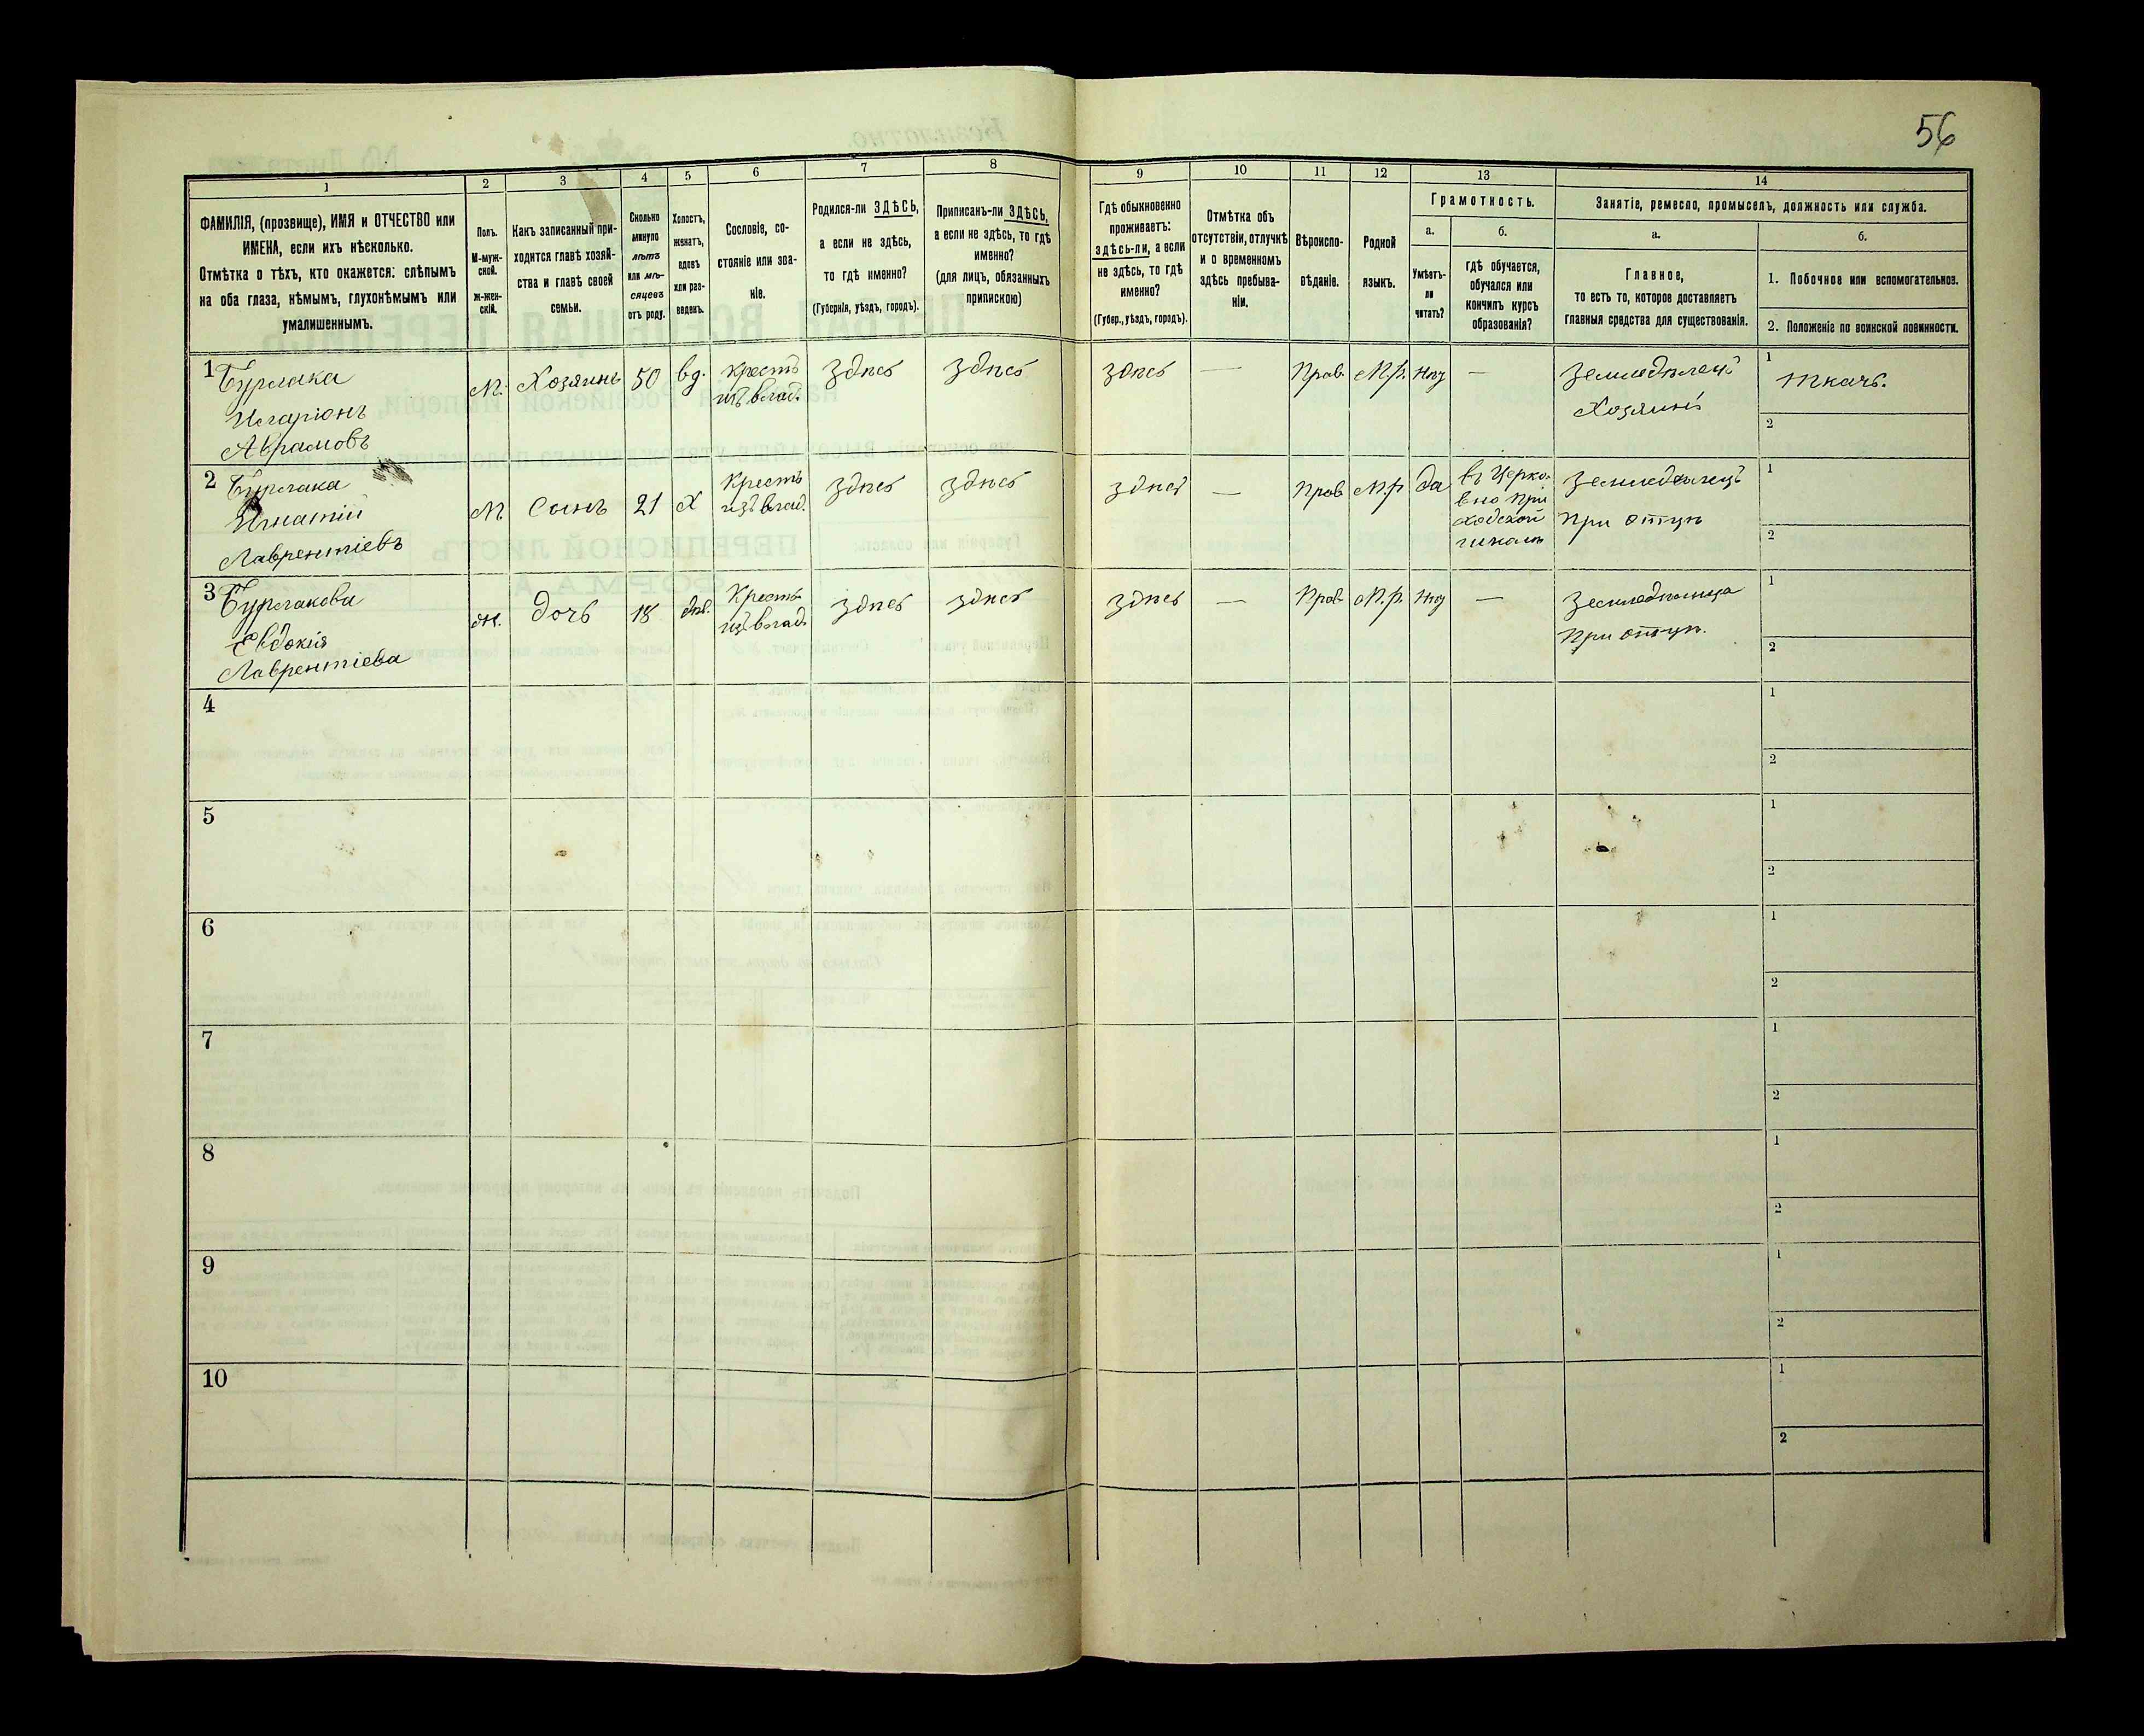 56
1
2
3
4
5
6
7
8
9
10
11
12
13
14
ФАМИЛІЯ, (прозвище), ИМЯ и ОТЧЕСТВО или
ИМЕНА, если ихъ нѣсколько.
Отмѣтка о тѣхъ, кто окажется: слѣпымъ
на оба глаза, нѣмымъ, глухонѣмымъ или
умалишеннымъ.
Полъ.
М-муж-
ской.
Ж-жен-
скій.
Какъ записанный при-
ходится главѣ хозяй-
ства и главѣ своей
семьи.
Сколько
минуло
лѣтъ
или мѣ-
сяцевъ
отъ роду.
Холостъ,
женатъ,
вдовъ
или раз-
веденъ.
Сословіе, со-
стояніе или зва-
ніе.
Родился-ли ЗДѢСЬ,
а если не здѣсь,
то гдѣ именно?
(Губернія, уѣздъ, городъ).
Приписанъ-ли ЗДѢСЬ,
а если не здѣсь, то гдѣ
именно?
(для лицъ, обязанныхъ
припискою)
Гдѣ обыкновенно
проживаетъ:
здѣсь-ли, а если
не здѣсь, то гдѣ
именно?
(Губер., уѣздъ, городъ).
Отмѣтка объ
отсутствіи, отлучкѣ
и о временномъ
здѣсь пребыва-
ніи.
Вѣроиспо-
вѣданіе.
Родной
языкъ.
Грамотность.
а.
Умѣетъ-
ли
читать?
б.
гдѣ обучается,
обучался или
кончилъ курсъ
образованія?
Занятіе, ремесло, промыселъ, должность или служба.
а.
Главное,
то есть то, которое доставляетъ
главныя средства для существованія.
б.
1. Побочное или вспомогательное.
2. Положеніе по воинской повинности.
1
Бурлака
Иларіонъ
Аврамовъ
М.
Хозяинъ
50
вд.
Крестъ
изъ влад.
здѣсь
здѣсь
здѣсь
—
Прав.
М.р.
нѣт
—
Земледѣлецъ
Хозяинъ
1
Ткачъ.
2
2
Бурлака
Игнатій
Лаврентіевъ
М
Сынъ
21
Х
Крестъ
изъ влад.
здѣсь
здѣсь
здѣсь
—
Прав
М.р
да
въ Церко-
вно При
ходской
школѣ
Земледѣлецъ
При отцѣ
1
2
3
Бурлакова
Евдокія
Лаврентіева
ж.
дочь
18
дѣв.
Крестъ
изъ влад.
здѣсь
здѣсь
здѣсь
—
Прав
М.р.
нѣт
—
Земледѣлица
При отцѣ.
1
2
4
1
2
5
1
2
6
1
2
7
1
2
8
1
2
9
1
2
10
1
2